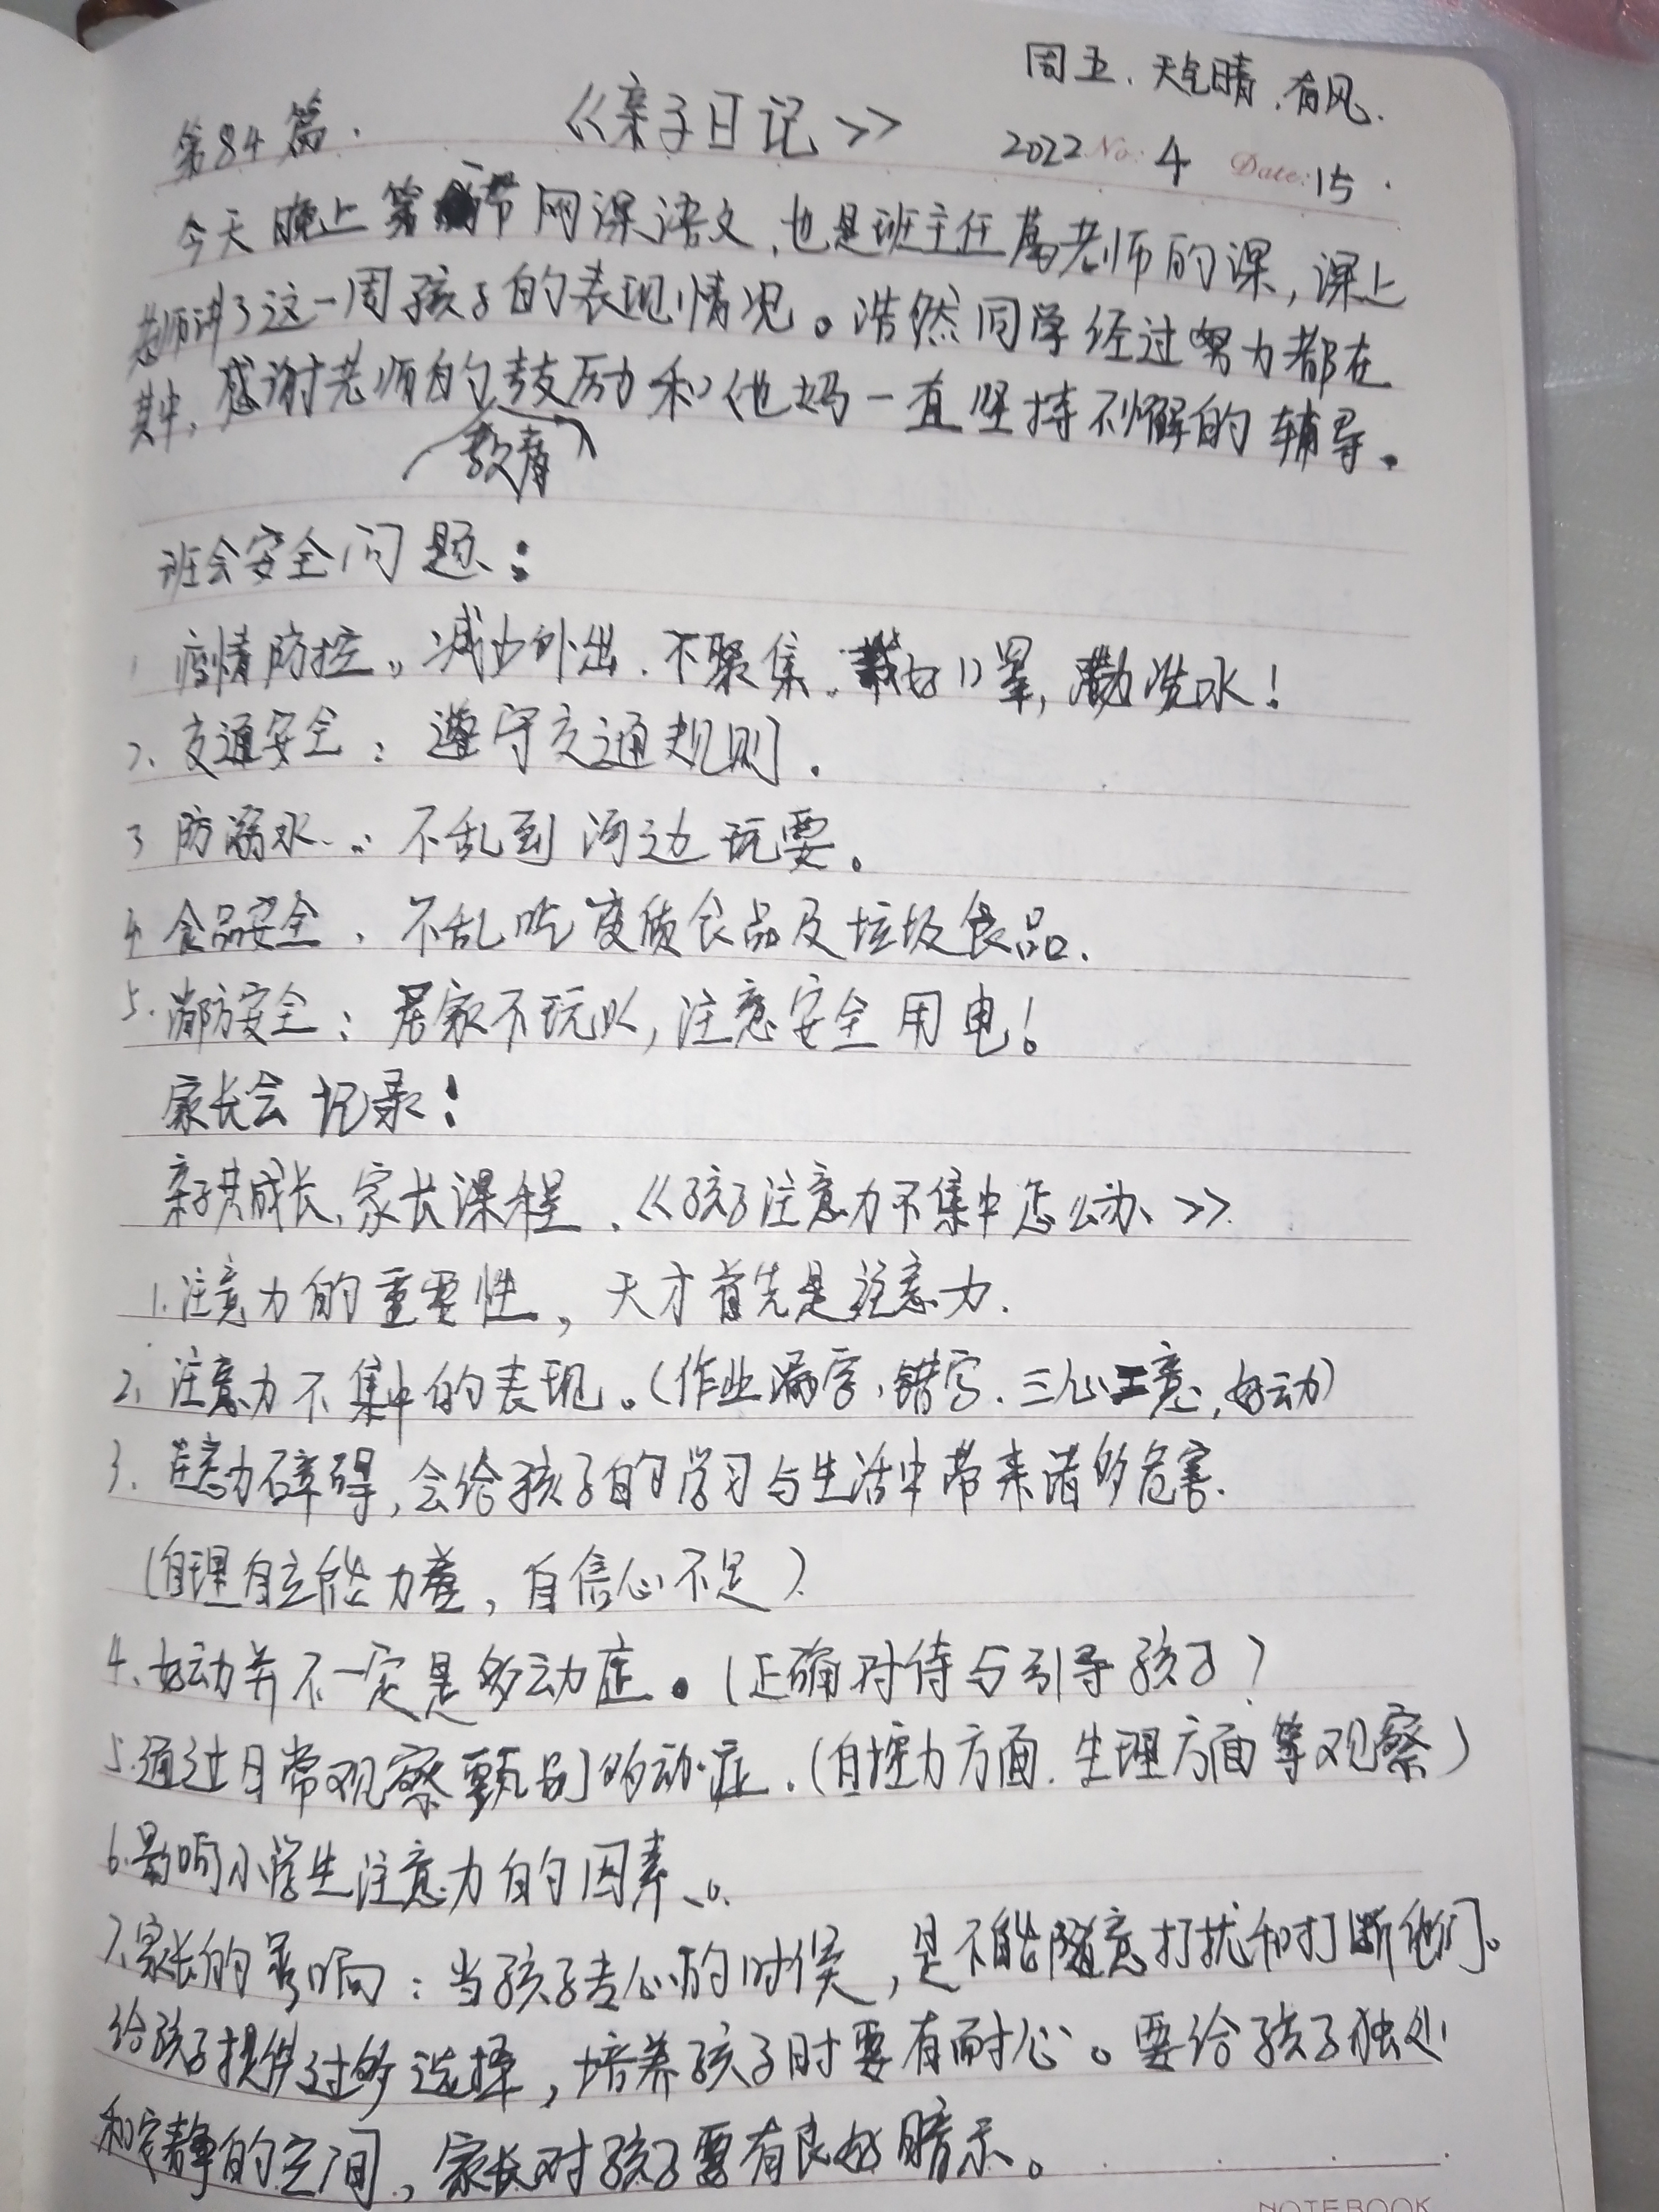 周五.天气晴.有风.
第84篇. 《亲子日记》 2022 No: 4 Date: 15.
今天晚上第一节网课语文,也是班主任葛老师的课,课上
老师讲了这一周孩子的表现情况。浩然同学经过努力都在
其中,感谢老师的鼓励和他妈一直坚持不懈的辅导。
(教育)
班会安全问题:
1 疫情防控。减少外出.不聚集.戴好口罩,勤洗水!
2、交通安全:遵守交通规则.
3 防溺水..:不乱到河边玩耍。
4.食品安全.不乱吃变质食品及垃圾食品.
5.消防安全:居家不玩火,注意安全用电!
家长会记录:
亲子共成长,家长课程.《孩子注意力不集中怎么办、》
1.注意力的重要性,天才首先是注意力.
2、注意力不集中的表现。(作业漏字,错字.三心二意,好动)
3.注意力障碍,会给孩子的学习与生活中带来诸多危害.
(自理自立能力差,自信心不足)
4、好动并不一定是多动症。(正确对待与引导孩子)
5.通过日常观察甄别多动症.(自控力方面.生理方面等观察)
6.影响小学生注意力的因素。
7.家长的影响:当孩子专心的时候,是不能随意打扰和打断他们。
给孩子提供过多选择,培养孩子时要有耐心。要给孩子独处
和安静的空间,家长对孩子要有良好暗示。
NOTEBOOK